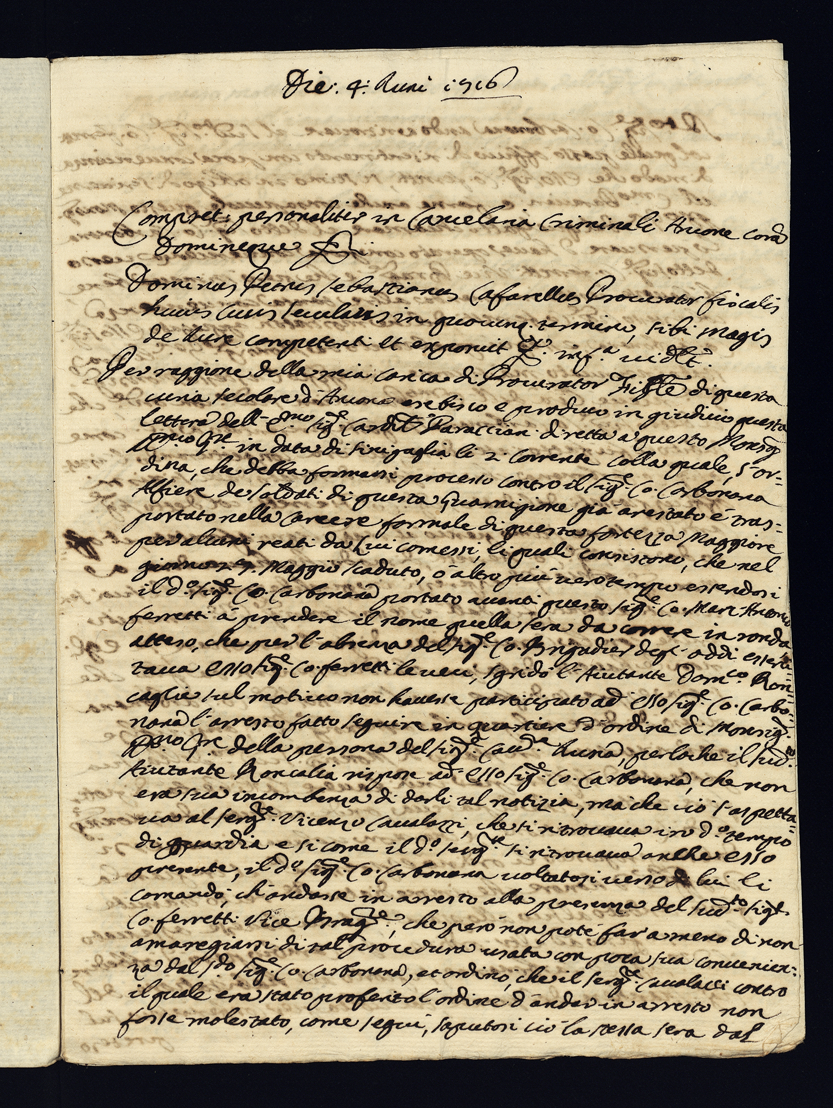 Die: 4: Iuni 1716
Comprt: personaliter in Cancelaria Criminali Ancone corā
Domineque
Dominus Petrus Sebastianus Cafarellus Procurator fiscalis
huius Curie secularis in quocunq; termine, sibi magis
de Iure competenti et exponit inf.a vidlt.
Per raggione della mia carica di Procurator Fisle di questa
curia secolare d'Ancona esebisco e produco in giudicio questa
lettera dell'Emo sige Cardle Paraccian diretta a questo Monsig
in data di Sinigaglia li 2 corrente colla quale, s'or-
dina, che debba formarsi processo contro il sige Co: Carbonana
Alfiere de soldati di questa Guarnigione già arestato e tras-
portato nella carcere formale di questa fortezza Maggiore
per alcuni reati da lui comessi, li quali consistono, che nel
giorno 29. Maggio scaduto, ò altro più vero tempo essendosi
il do sige Co: Carbonana portato avanti questo sige Co: Marc Antonio
ferretti à prendere il nome quella sera da correre in ronda
atteso, che per l'absenza del sige Co: Brigadier degl'oddi eserci-
tava esso sige Co: ferretti le veci, sgridò l'Aiutante Domco Ron
caglie sul motivo non havesse participato ad esso sige Co: Carbo-
nana l'arresto fatto seguire in quartiere d'ordine di Monsige
della persona del sige Luna, perloche il sudo
Aiutante Roncalia rispose ad esso sige Co: Carbonana, che non
era sua incombenza di darli tal notizia, ma che ciò s'aspetta-
va al serge Vicenzo Cavalazzi, che si ritrovava in do tempo
di guardia e si come il do serge si ritrovava anche esso
presente, il do sige Co: Carbonana voltatosi verso di lui li
comandò, ch'andasse in arresto alla presenza del sudto sige
Co: ferretti Vice, che però non potè far a meno di non
amaregiarsi di tal procedura usata con poca sua convenien-
za dal sdo sige Co: Carbonana, et ordinò, che il serge Cavalazzi contro
il quale era stato proferito l'ordine d'andar in arresto non
fosse molestato, come seguì, saputosi ciò la stessa sera dal